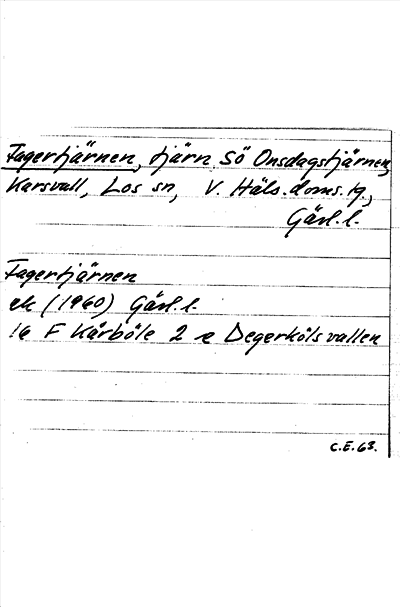 Fagertjärnen, tjärn SÖ Onsdagstjärnen,
Karsvall, Los sn, V. Häls. doms. tg.,
Gävl. l.
Fagertjärnen
ek (1960) Gävl. l.
16 F Kårböle 2 e Degerkölsvallen
C.E. 63.